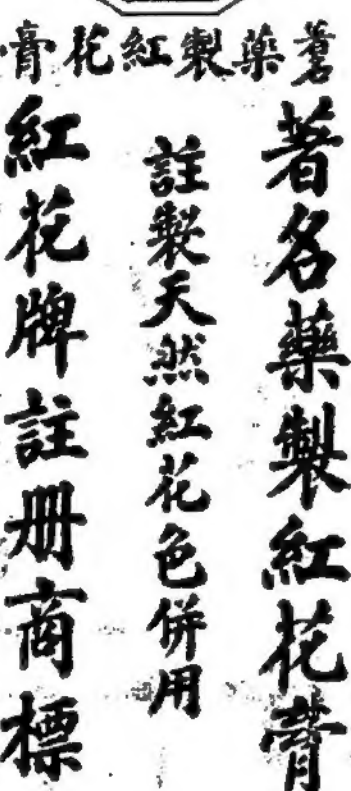 藥製紅花膏
著名藥製紅花膏
註製天然紅花色併用
紅花牌註册商標